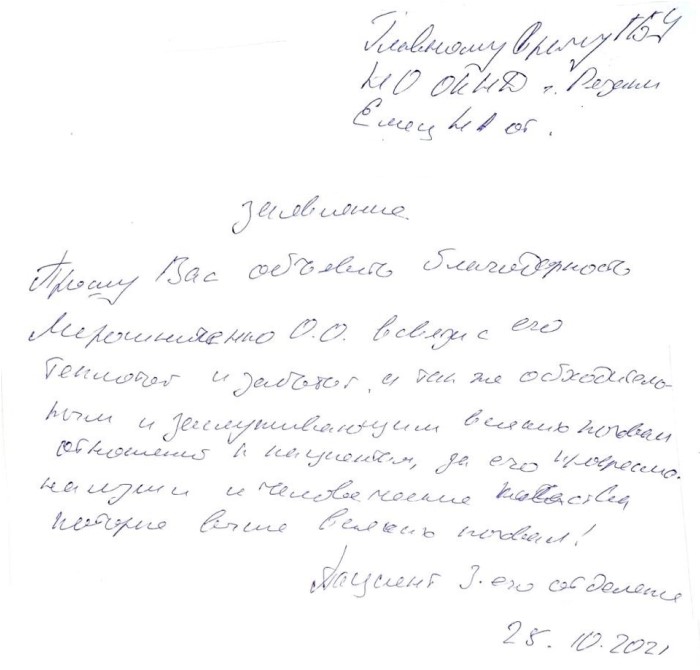 Главному врачу ГБУ
РО ОКНД г. Рязани
Емец НА от.
заявление
Прошу Вас объявить благодарность
Мирошниченко О.О. в связи с его
теплотой и заботой, а так же обходитель-
ным и заслуживающим всяких похвал
отношений к пациентам, за его професио-
нализм и человеческие качества
которые выше всяких похвал!
Пациент 3-его отделения
28.10.2021